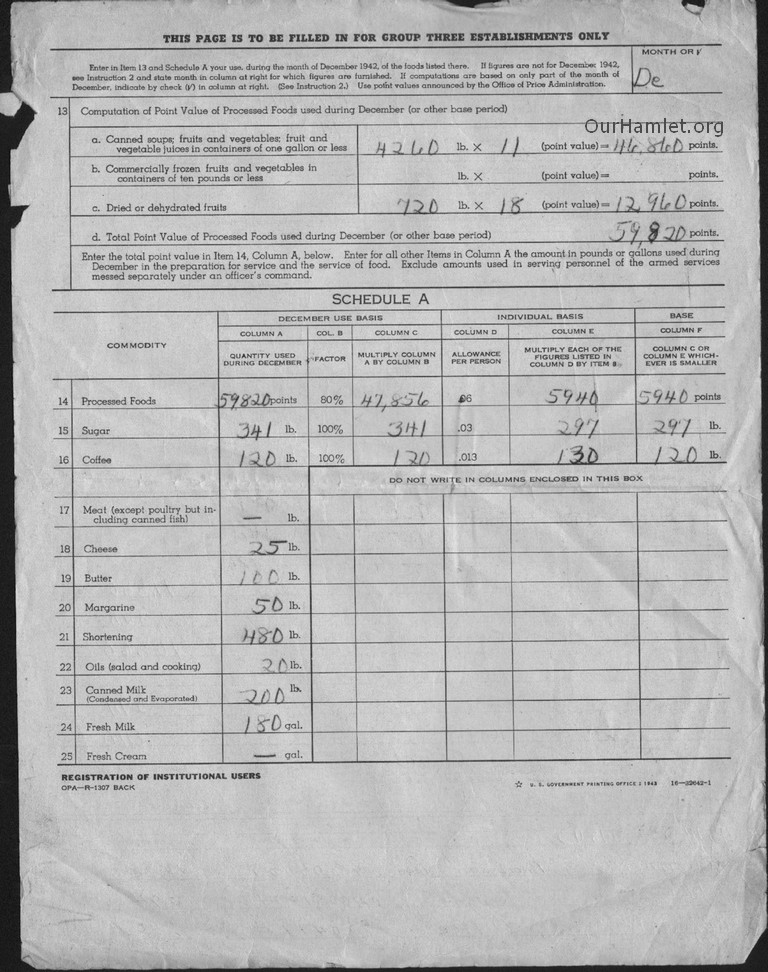 THIS PAGE IS TO BE FILLED IN FOR GROUP THREE ESTABLISHMENTS ONLY
Enter in Item 13 and Schedule A your use, during the month of December 1942, of the foods listed there. If figures are not for December 1942,
see Instruction 2 and state month in column at right for which figures are furnished. If computations are based on only part of the month of
December, indicate by check (√) in column at right. (See Instruction 2.) Use point values announced by the Office of Price Administration.
MONTH OR √
De
13 Computation of Point Value of Processed Foods used during December (or other base period)
OurHamlet.org
a. Canned soups; fruits and vegetables; fruit and
vegetable juices in containers of one gallon or less 4260 lb. × 11 (point value) = 46,860 points.
b. Commercially frozen fruits and vegetables in
containers of ten pounds or less lb. × (point value) = points.
c. Dried or dehydrated fruits 720 lb. × 18 (point value) = 12,960 points.
d. Total Point Value of Processed Foods used during December (or other base period) 59,820 points.
Enter the total point value in Item 14, Column A, below. Enter for all other Items in Column A the amount in pounds or gallons used during
December in the preparation for service and the service of food. Exclude amounts used in serving personnel of the armed services
messed separately under an officer's command.
SCHEDULE A
COMMODITY
DECEMBER USE BASIS INDIVIDUAL BASIS BASE
COLUMN A COL. B COLUMN C COLUMN D COLUMN E COLUMN F
QUANTITY USED
DURING DECEMBER
FACTOR
MULTIPLY COLUMN
A BY COLUMN B
ALLOWANCE
PER PERSON
MULTIPLY EACH OF THE
FIGURES LISTED IN
COLUMN D BY ITEM 8
COLUMN C OR
COLUMN E WHICH-
EVER IS SMALLER
14 Processed Foods 59820 points 80% 47,856 5940 5940 points
15 Sugar 341 lb. 100% 341 .03 297 297 lb.
16 Coffee 120 lb. 100% 120 .013 130 120 lb.
DO NOT WRITE IN COLUMNS ENCLOSED IN THIS BOX
17 Meat (except poultry but in-
cluding canned fish) — lb.
18 Cheese 25 lb.
19 Butter 100 lb.
20 Margarine 50 lb.
21 Shortening 480 lb.
22 Oils (salad and cooking) 20 lb.
23 Canned Milk
(Condensed and Evaporated) 200 lb.
24 Fresh Milk 180 gal.
25 Fresh Cream — gal.
REGISTRATION OF INSTITUTIONAL USERS
OPA—R-1307 BACK
☆ U. S. GOVERNMENT PRINTING OFFICE : 1943 16—33042-1